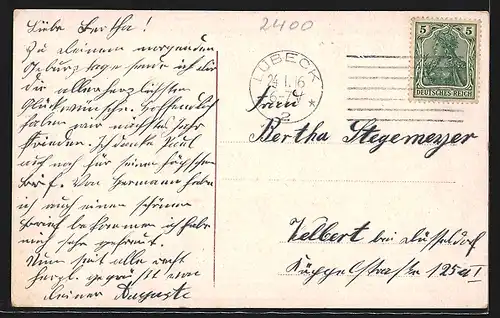 Liebe Bertha!
Zu Deinem morgenden
Geburtstage sende ich dir
die allerherzlichsten
Glückwünsche. Hoffentlich
haben wir nächstes Jahr
Frieden. Ich danke Paul
auch noch für seinen hübschen
Brief. Von Hermann habe
ich auch einen schönen
Brief bekommen ich habe
mich sehr gefreut.
Nun seid alle recht
herzl. gegrüßt von
Deiner Auguste
2400
LÜBECK
24.1.16
* 2 *
5 5
DEUTSCHES REICH
Frau
Bertha Stegemeyer
Velbert bei Düsseldorf
Küppelstrasse 125a!